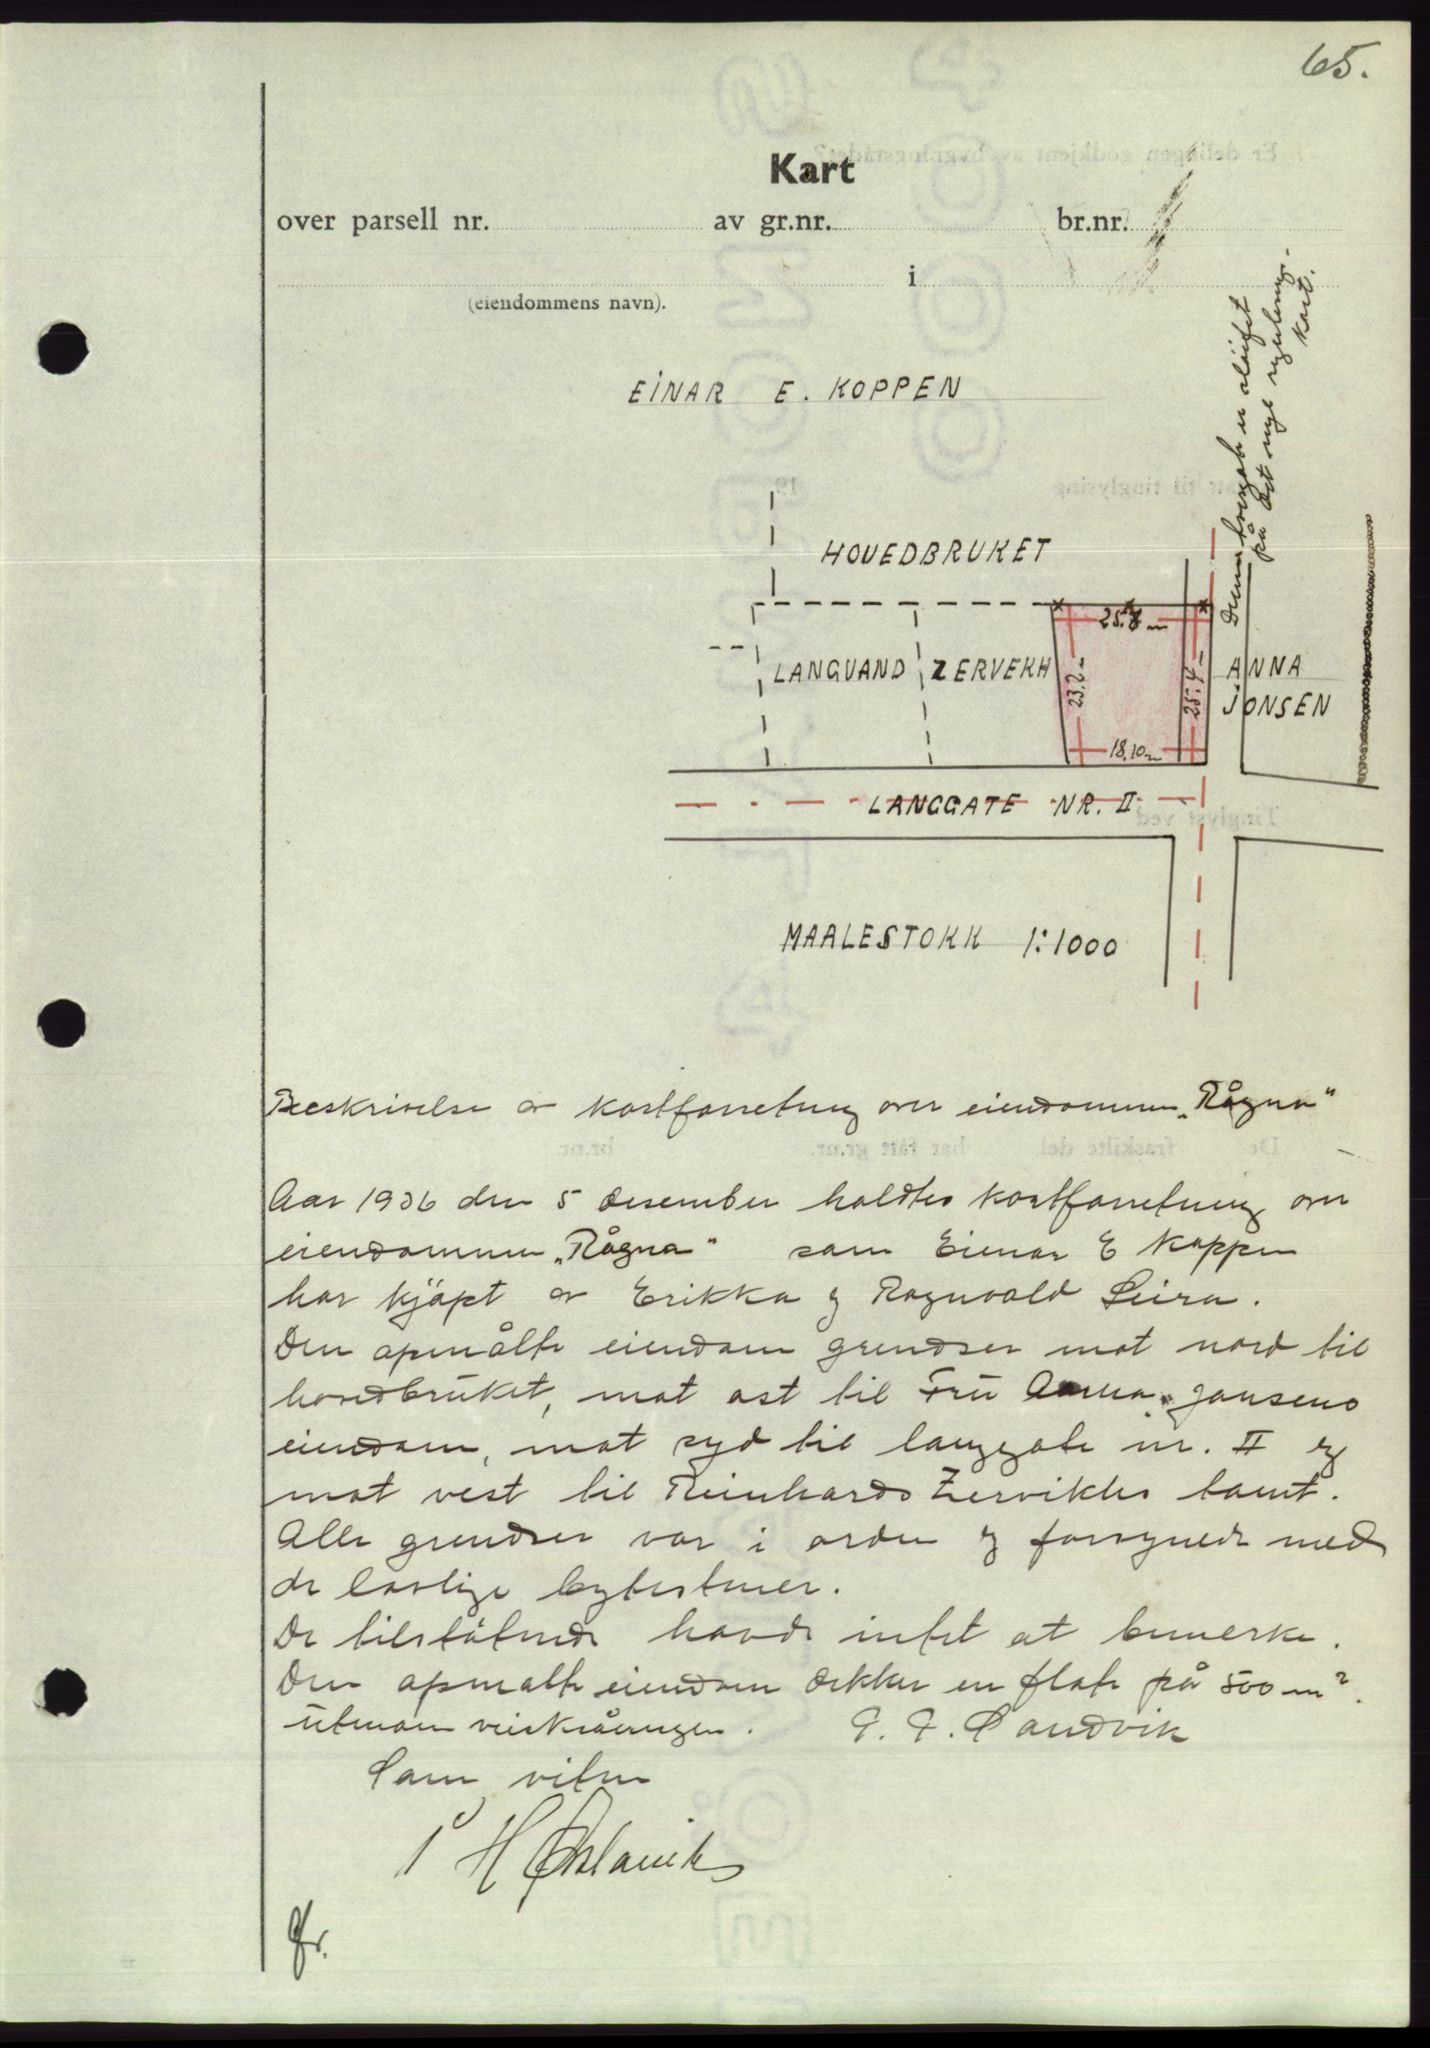 65.
Kart
over parsell nr. av gr.nr. br.nr.
i
(eiendommens navn).
EINAR E. KOPPEN
Denne tverrgate er sløifet
på det nye regulerings-
kart.
HOVEDBRUKET
25.8 m
LANGVAND ZERVEKH
23.2 m
25.4 m
ANNA
JONSEN
18.10 m
LANGGATE NR. II
MAALESTOKK 1:1000
Beskrivelse av kartforretning over eiendommen „Rågna"
Aar 1936 den 5 desember holdtes kartforretning over
eiendommen „Rågna" som Einar E Koppen
har kjöpt av Erikka og Ragnvald Leira.
Den opmålte eiendom grendser mot nord til
hovedbruket, mot ost til Fru Anna Jonsens
eiendom, mot syd til langgate nr. II og
mot vest til Reinhards Zervikhs tomt.
Alle grendser var i orden og forsynede med
de lovlige bytestener.
De tilstötende havde intet at bemerke.
Den opmalte eiendom dekker en flate på 500 m².
utenom veiskråningen. Sandvik
Som vitne
fr.